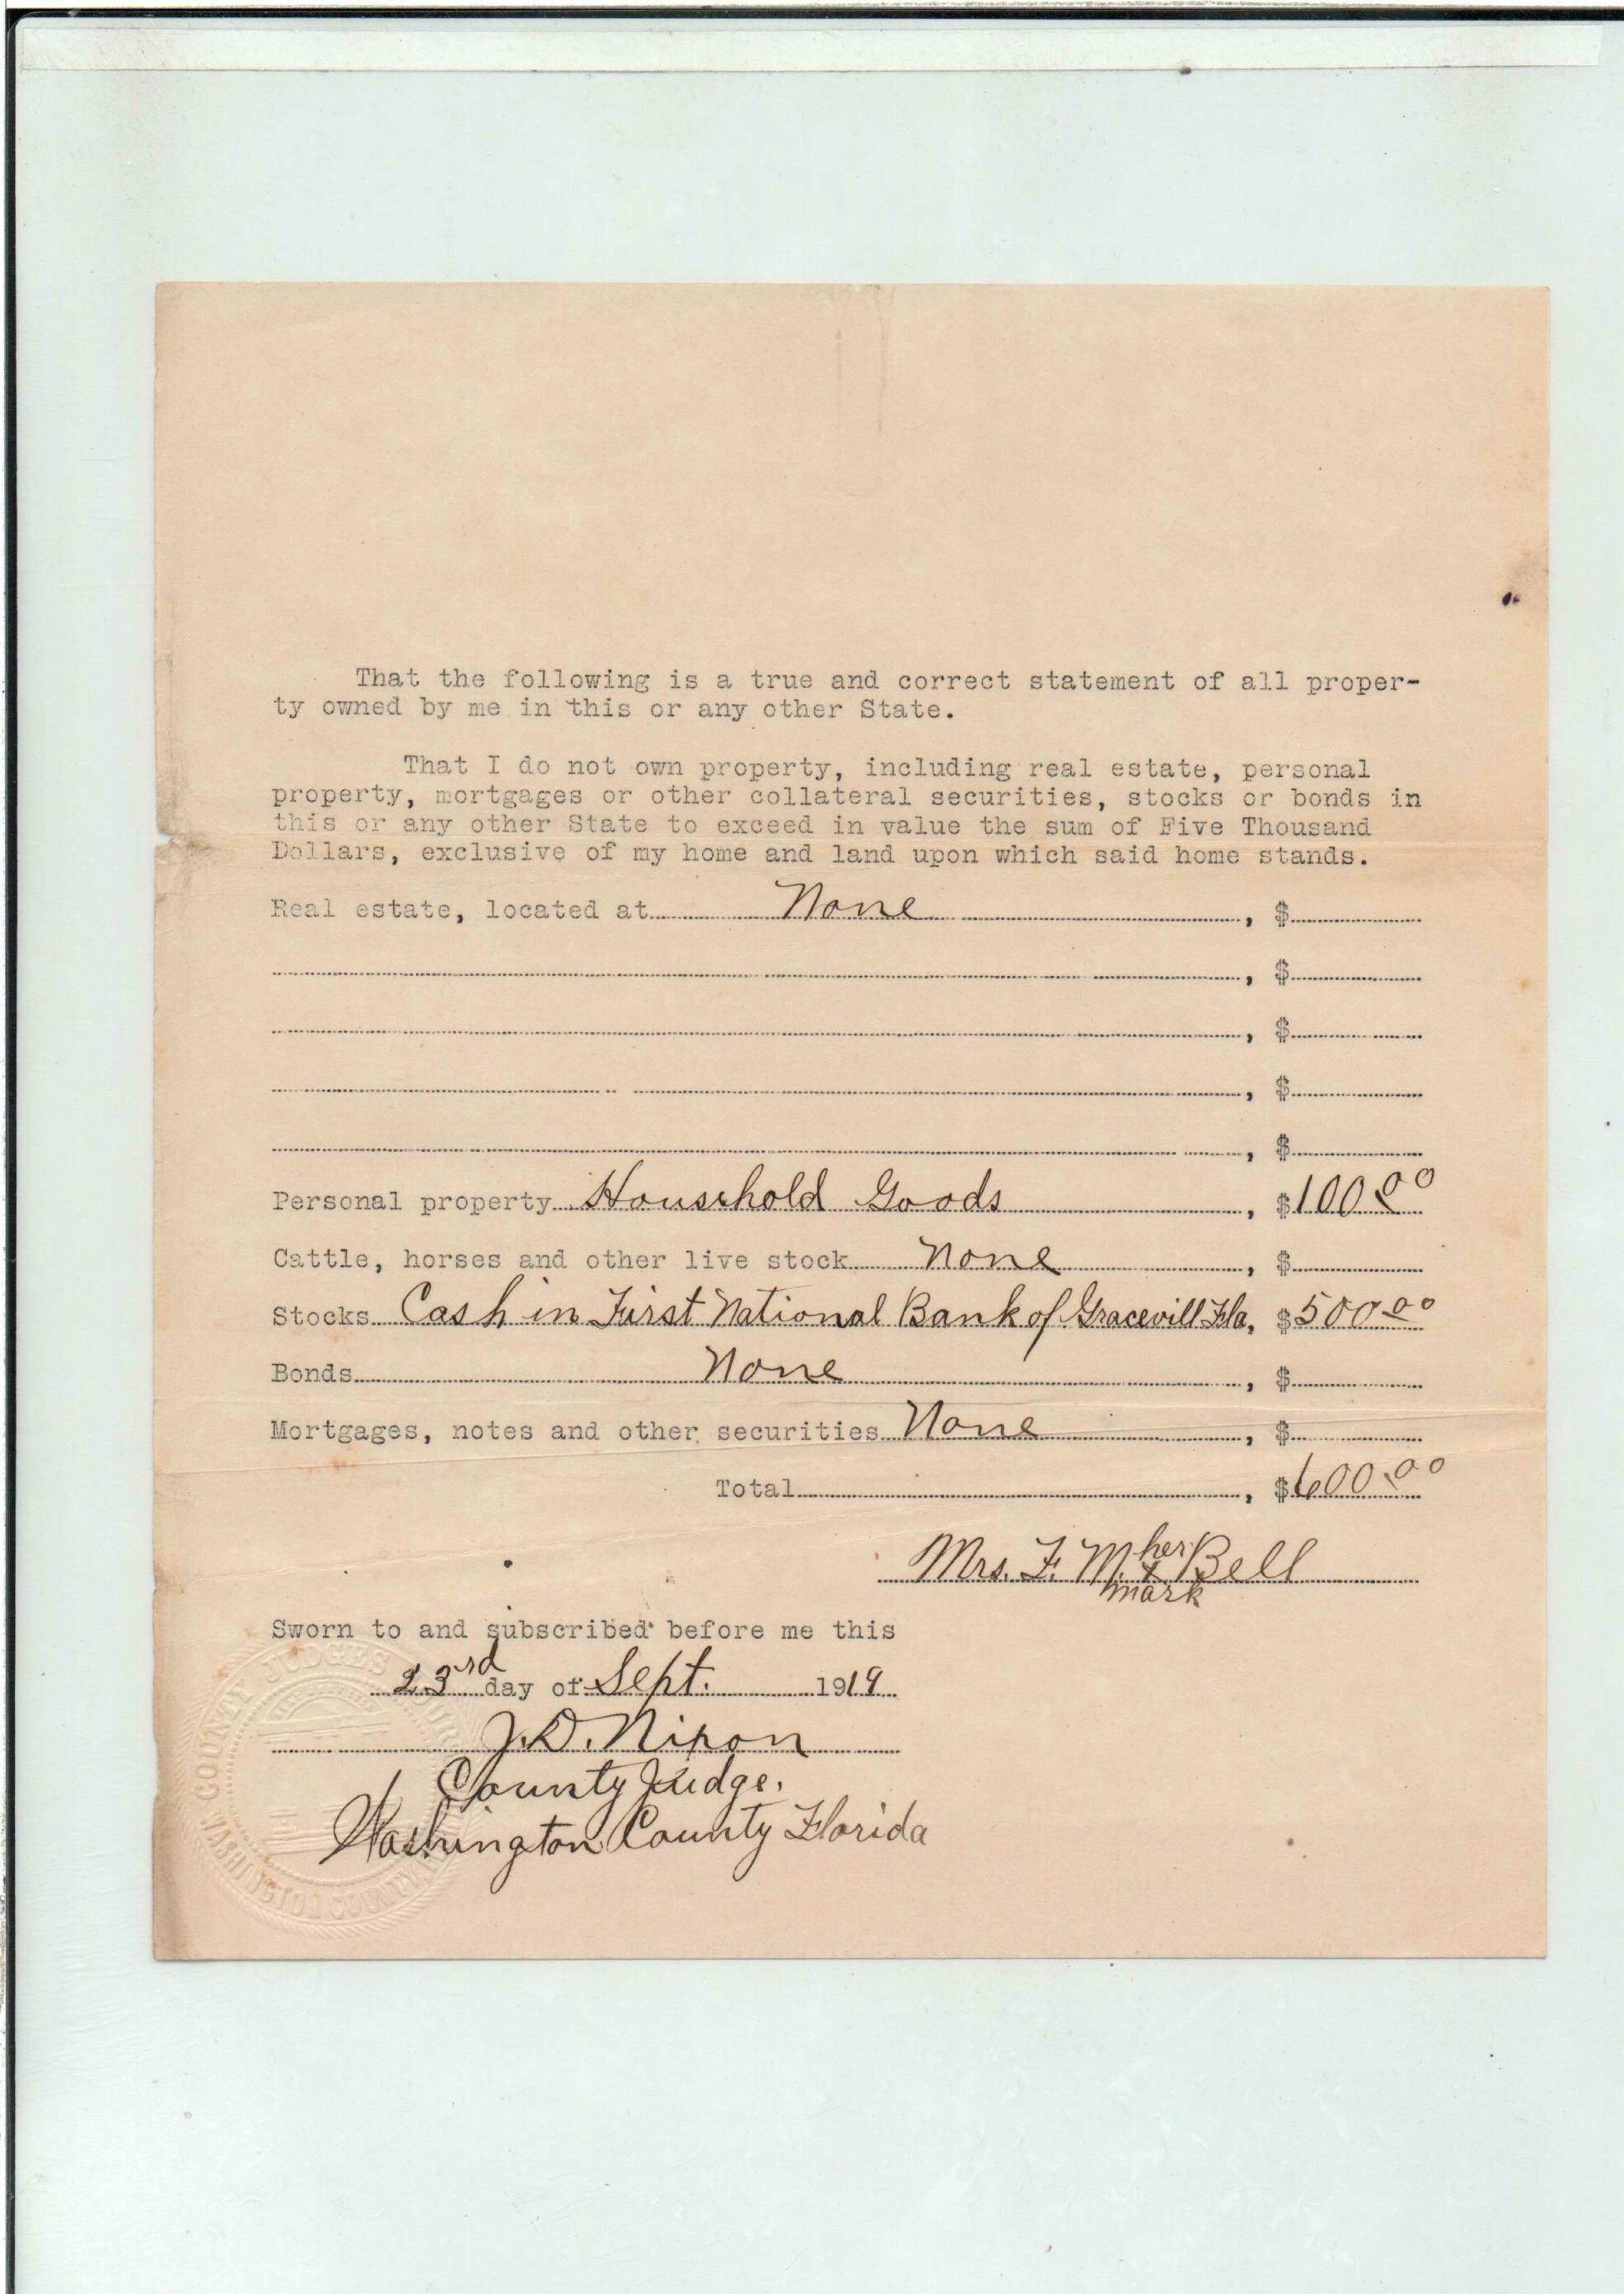 That the following is a true and correct statement of all proper-
ty owned by me in this or any other State.
That I do not own property, including real estate, personal
property, mortgages or other collateral securities, stocks or bonds in
this or any other State to exceed in value the sum of Five Thousand
Dollars, exclusive of my home and land upon which said home stands.
Real estate, located at None , $
, $
, $
, $
, $
Personal property Household Goods , $100.00
Cattle, horses and other live stock None , $
Stocks Cash in First National Bank of Gracevill Fla, $500.00
Bonds None , $
Mortgages, notes and other securities None , $
Total , $600.00
Mrs. F. M. her x mark Bell
Sworn to and subscribed before me this
23rd day of Sept. 1919
J. D. Nixon
County Judge.
Washington County Florida
COUNTY JUDGES
WASHINGTON COUNTY